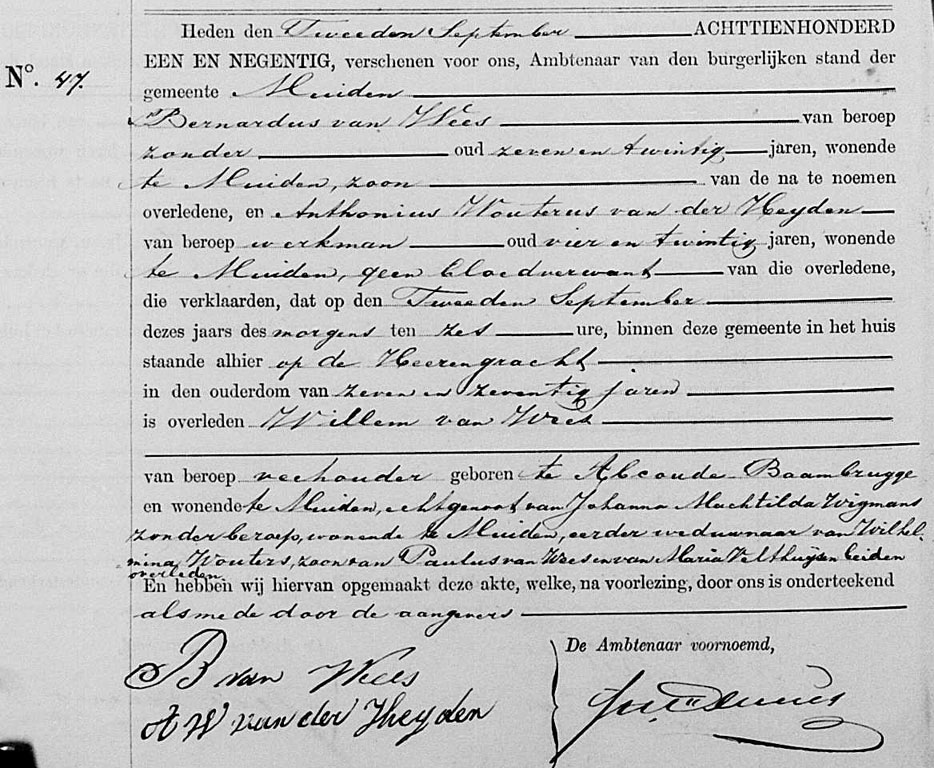 Heden den Tweeden September ACHTTIENHONDERD
No. 47. EEN EN NEGENTIG, verschenen voor ons, Ambtenaar van den burgerlijken stand der
gemeente Muiden
Bernardus van Wees van beroep
zonder oud zeven en twintig jaren, wonende
te Muiden, zoon van de na te noemen
overledene, en Anthonius Wouterus van der Heyden
van beroep werkman oud vier en twintig jaren, wonende
te Muiden, geen bloedverwant van die overledene,
die verklaarden, dat op den Tweeden September
dezes jaars des morgens ten zes ure, binnen deze gemeente in het huis
staande alhier op de Heerengracht
in den ouderdom van zeven en zeventig jaren
is overleden Willem van Wees
van beroep veehouder geboren te Abcoude Baambrugge
en wonende te Muiden, echtgenoot van Johanna Machtilda Wigmans
zonder beroep, wonende te Muiden, eerder weduwnaar van Wilhel-
mina Wouters, zoon van Paulus van Wees en van Maria Velthuijsen beiden
overleden.
En hebben wij hiervan opgemaakt deze akte, welke, na voorlezing, door ons is onderteekend
alsmede door de aangevers
De Ambtenaar voornoemd,
B van Wees
A W van der Heyden